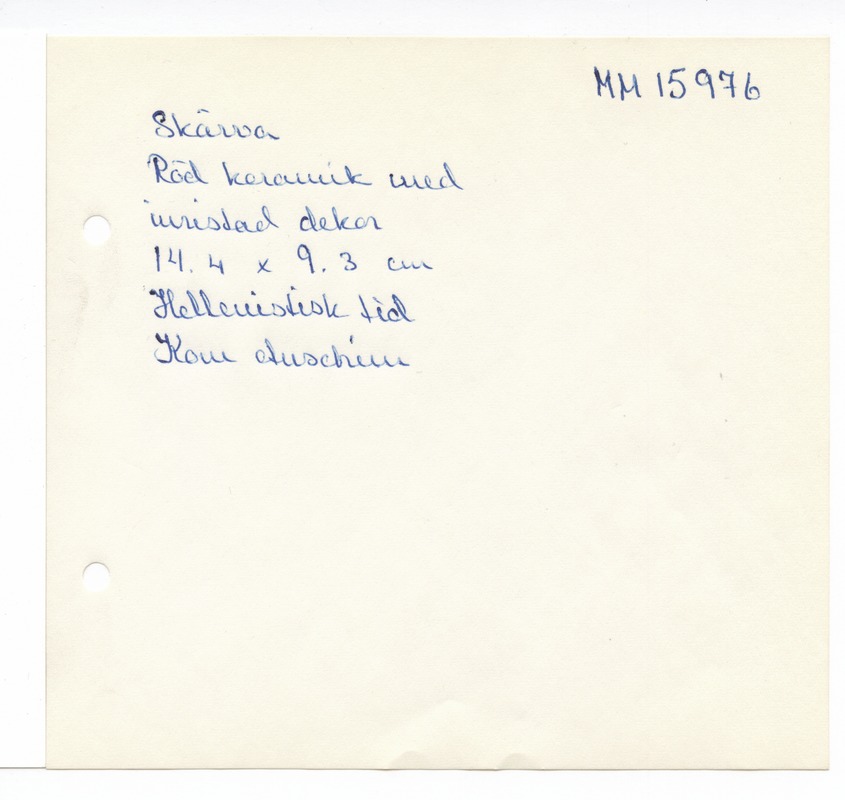 MM 15976
Skärva
Röd keramik med
inristad dekor
14.4 x 9.3 cm
Hellenistisk tid
Kom Auschim